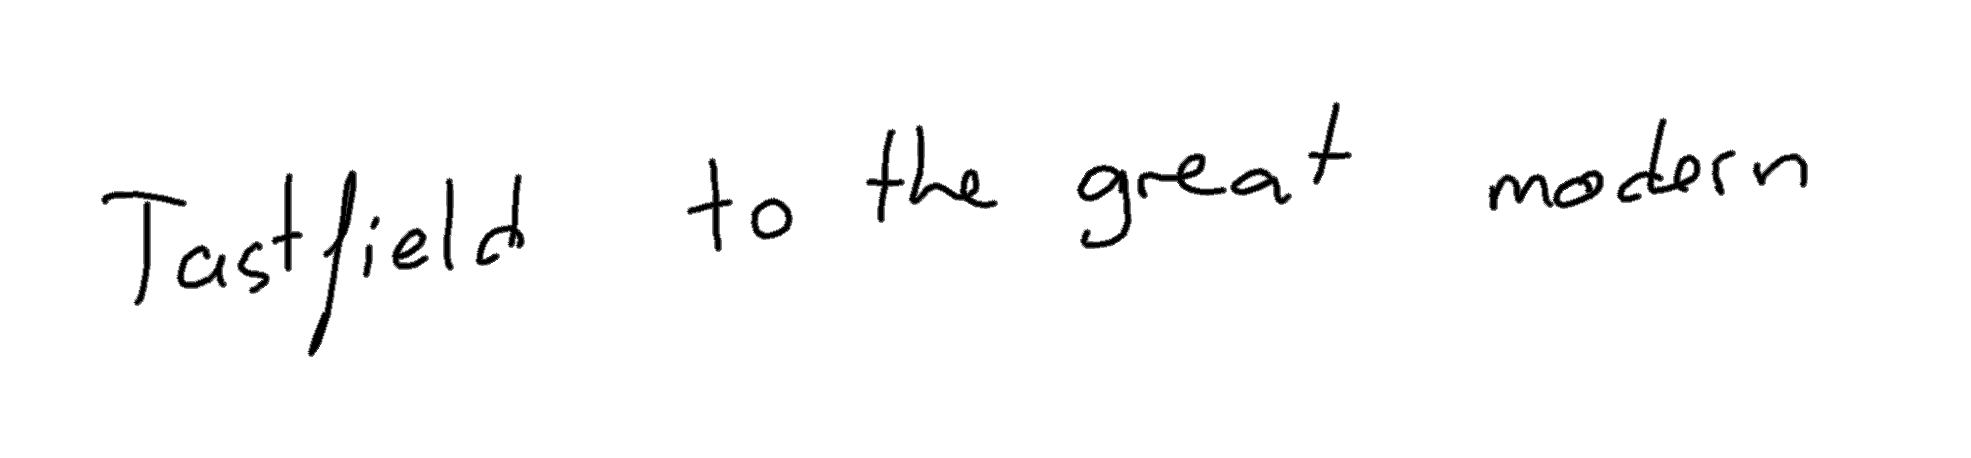 Tastfield to the great modern